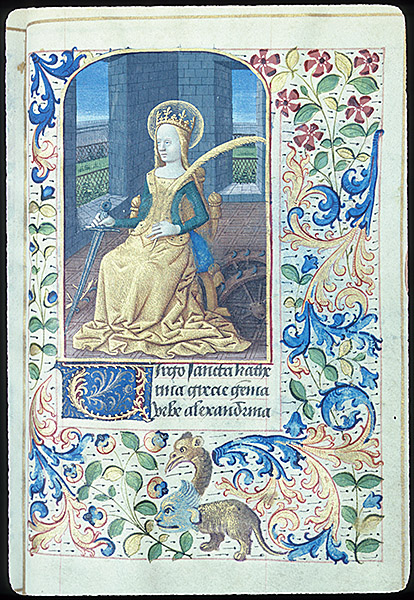 Virgo sancta kathe
rina grecie gema
vrbe alexandrina